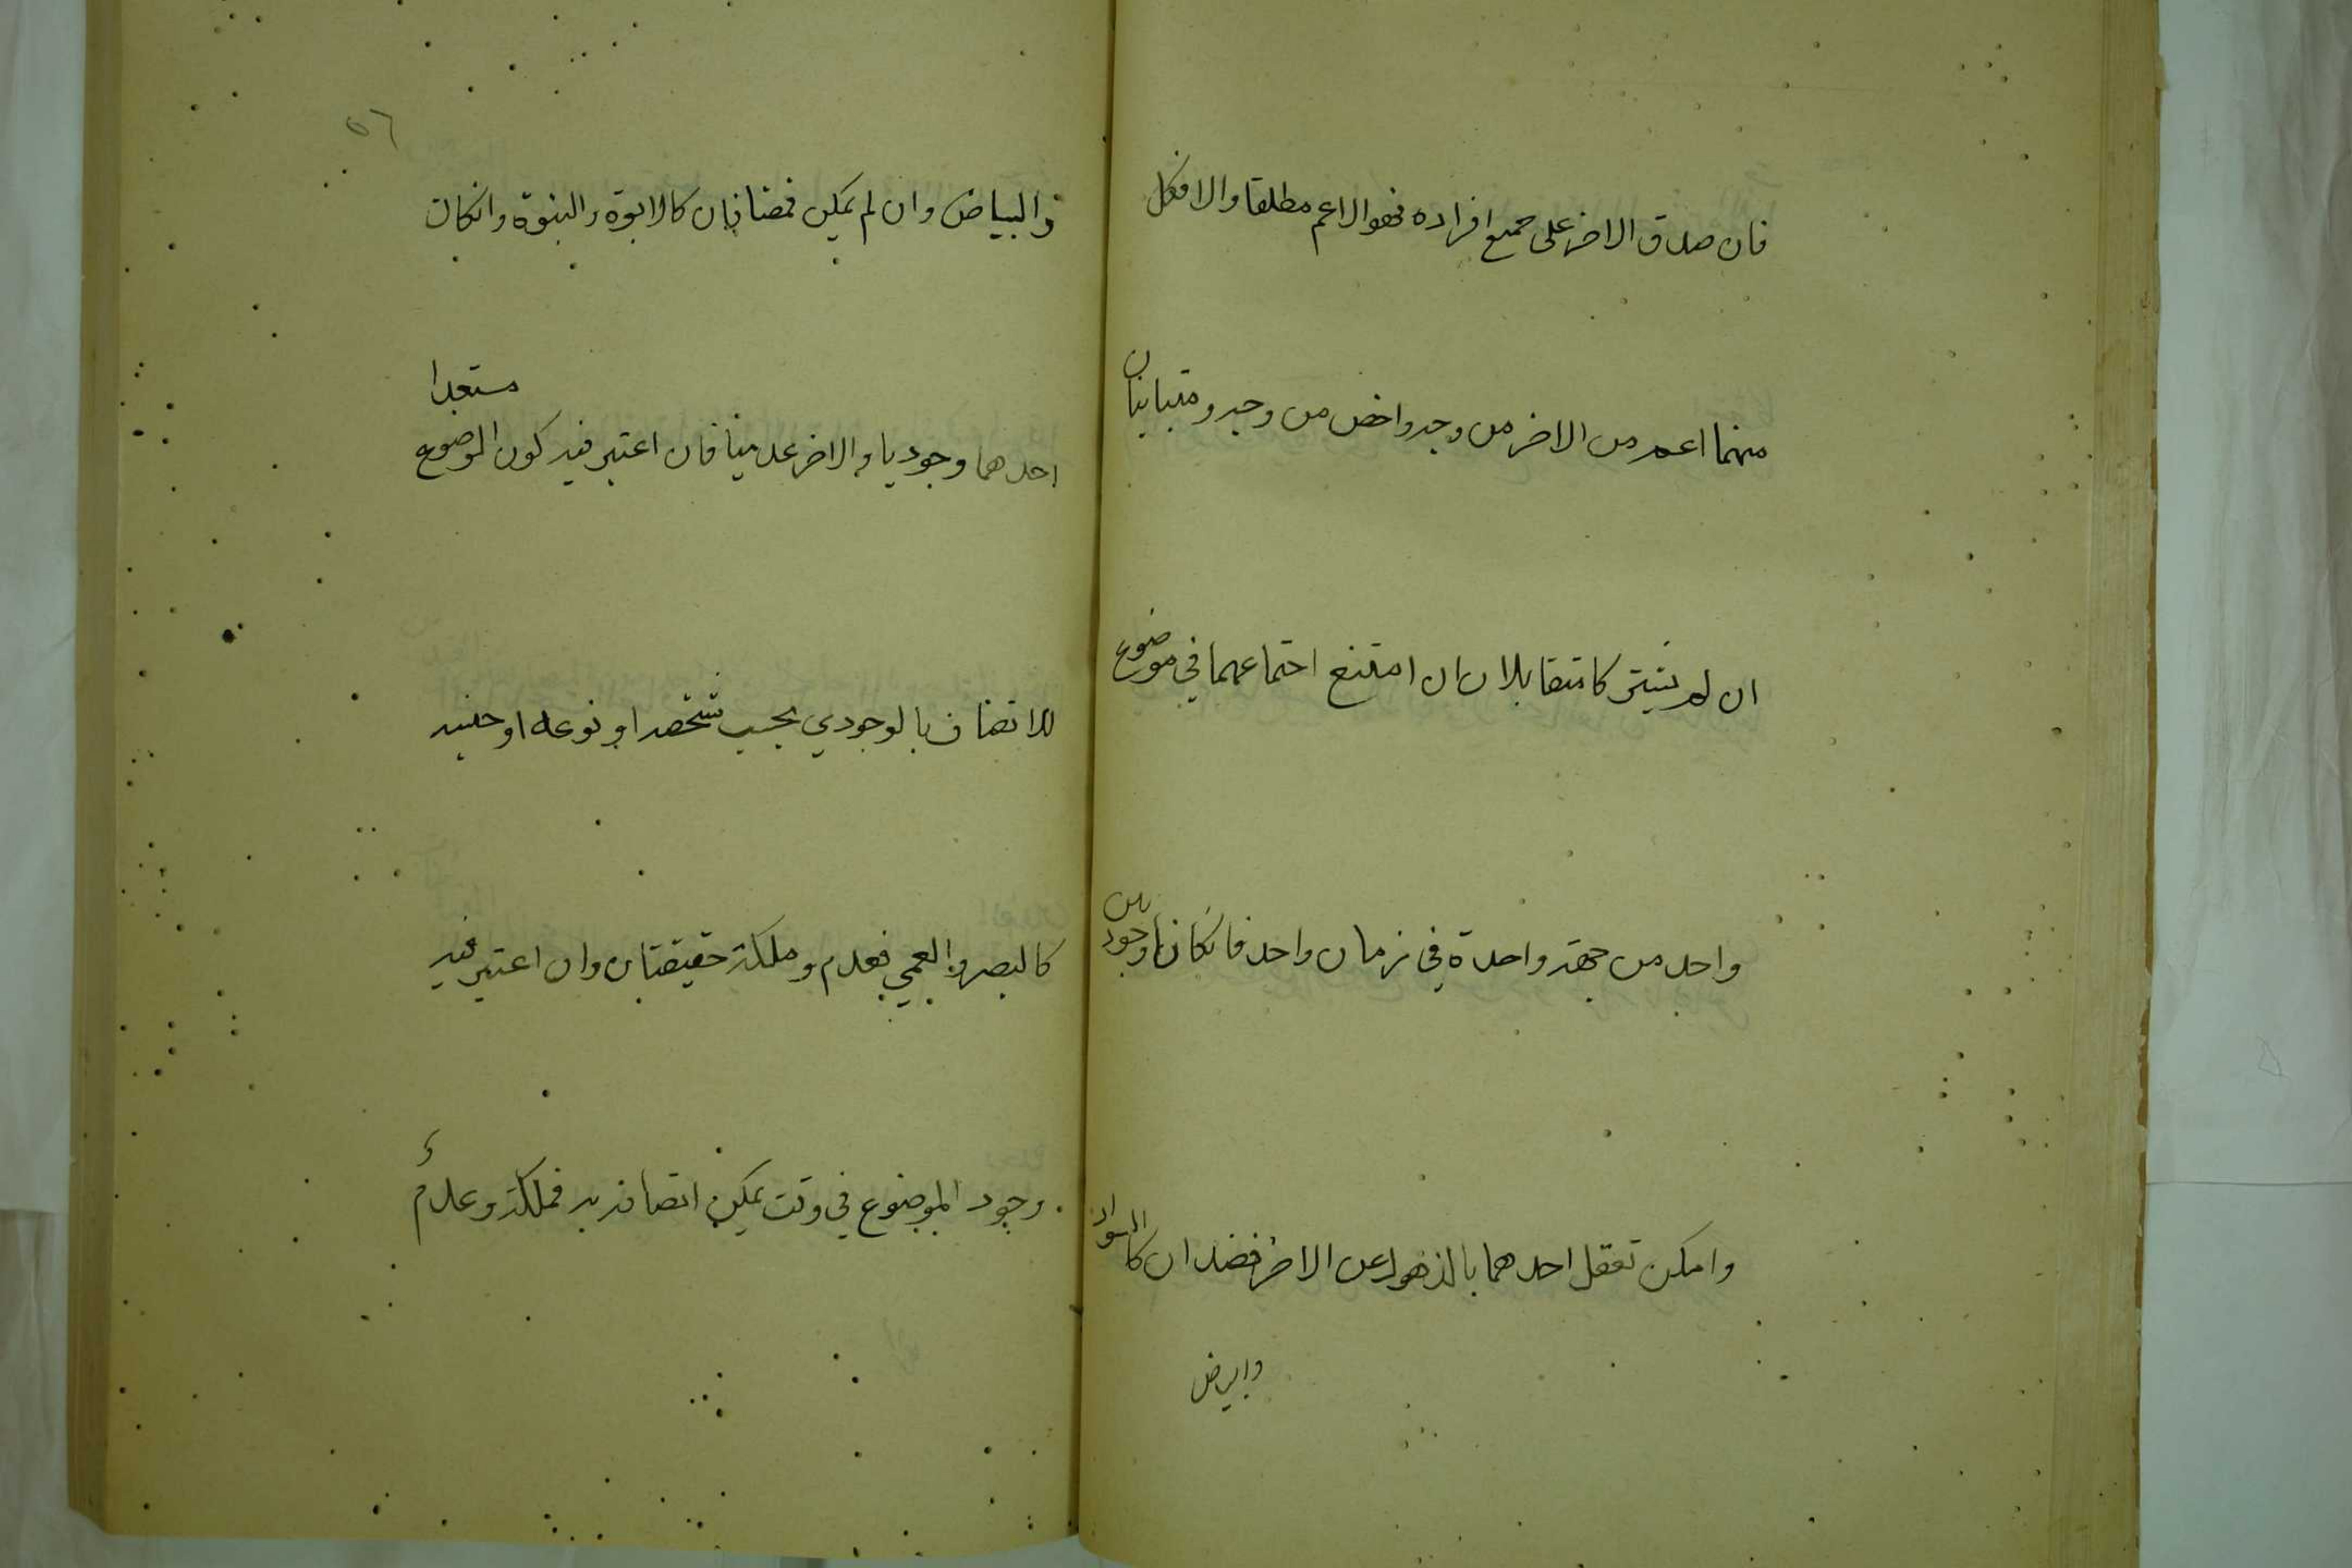 فان صدق الاخر على جميع افراده فهو الاعم مطلقا والا فكل
منهما اعم من الاخر من وجه واخص من وجه ومتباينان
ان لم يشتركا متقابلان ان امتنع اجتماعهما في موضوع
واحد من جهة واحدة في زمان واحد فانكانا وجوديين
وامكن تعقل احدهما بالذهول عن الاخر فضدان كالسواد
والبياض
٥٦
والبياض وان لم يمكن فمضافان كالابوة والبنوة وانكان
احدهما وجوديا والاخر عدميا فان اعتبر فيه كون الموضوع مستعدا
للاتصاف بالوجودي بحسب شخصه او نوعه او جنسه
كالبصر والعمي فعدم وملكة حقيقتان وان اعتبر فيه
وجود الموضوع في وقت يمكن اتصافه به فملكة وعدم